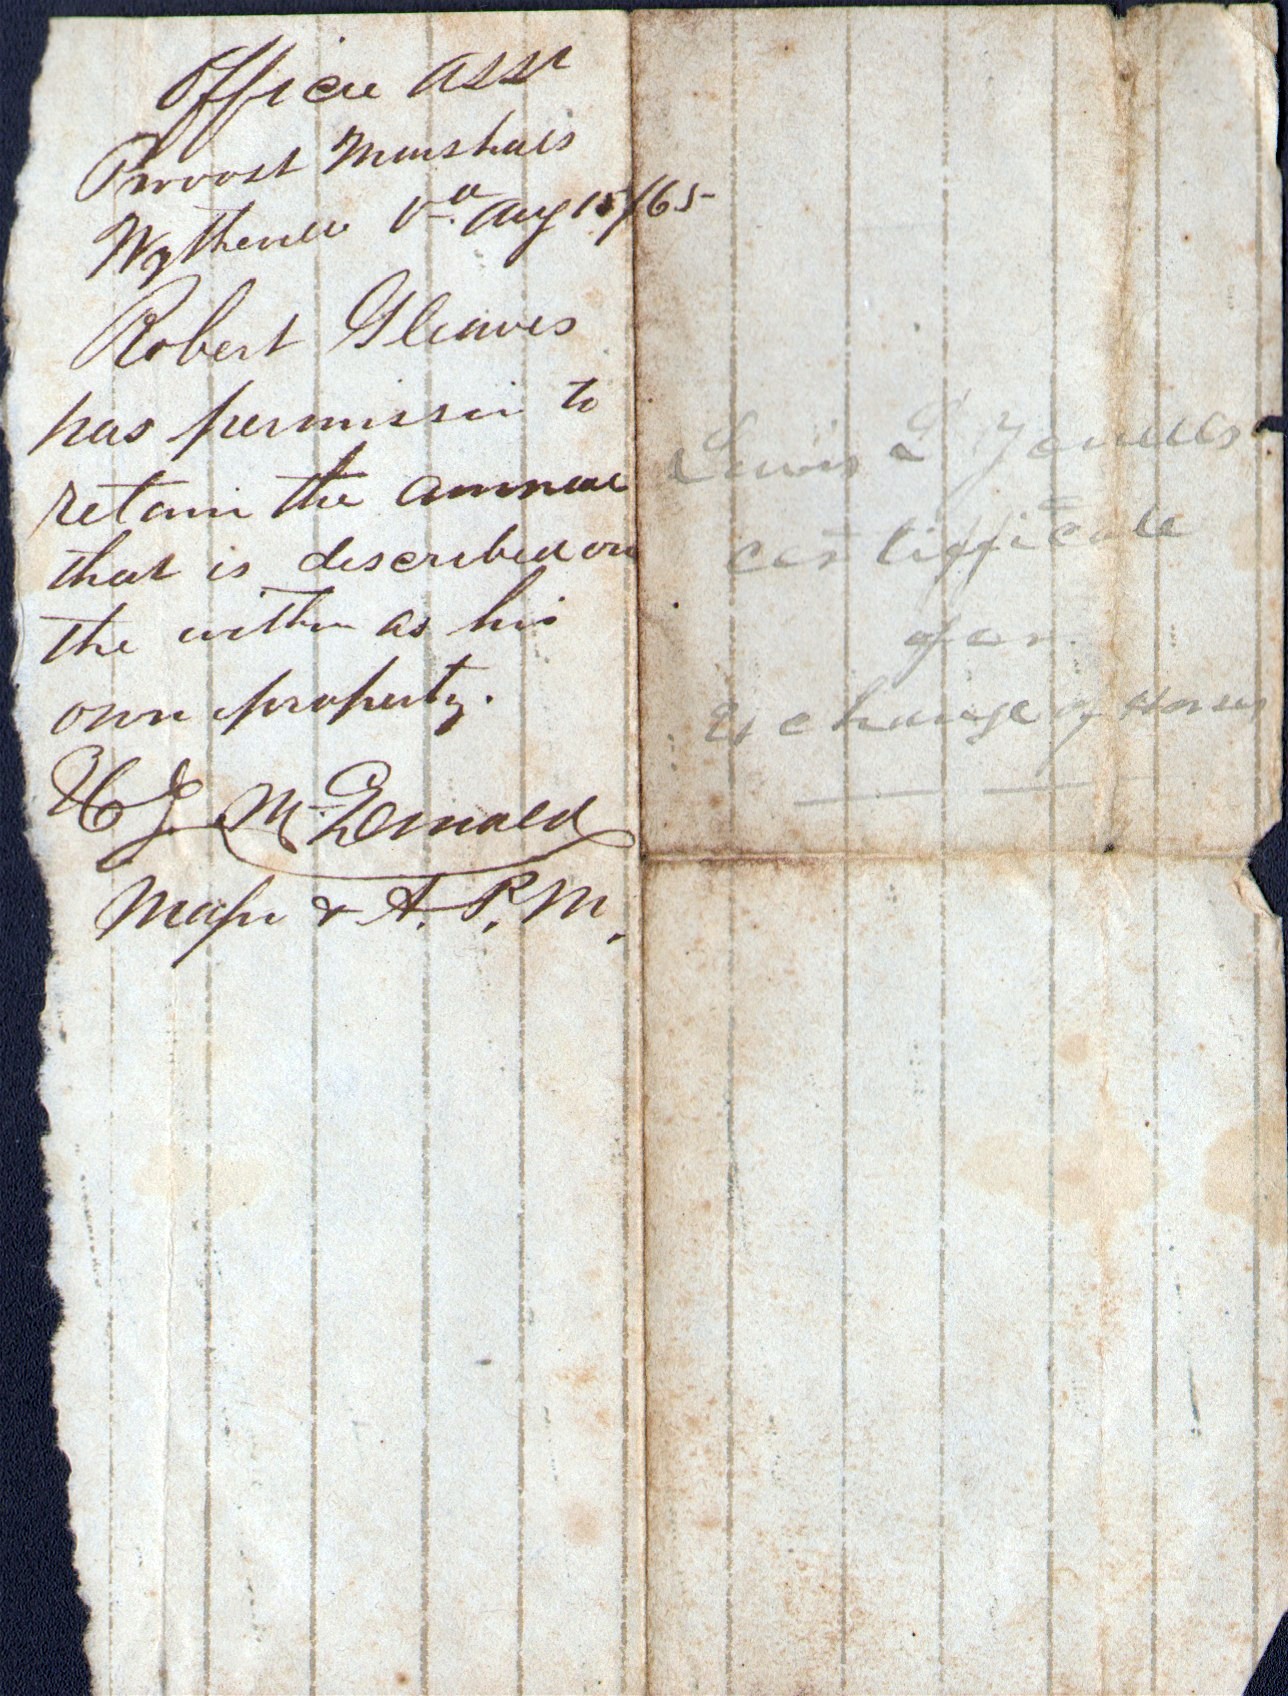 Office Asst
Provost Marshals
Wytheville Va. Aug 15/65
Robert Gleaves
has permission to
retain the animal
that is described on
the within as his
own property.
H J McDonald
Major & A. P. M.
Lewis
certifficate
for
Exchange of Horses